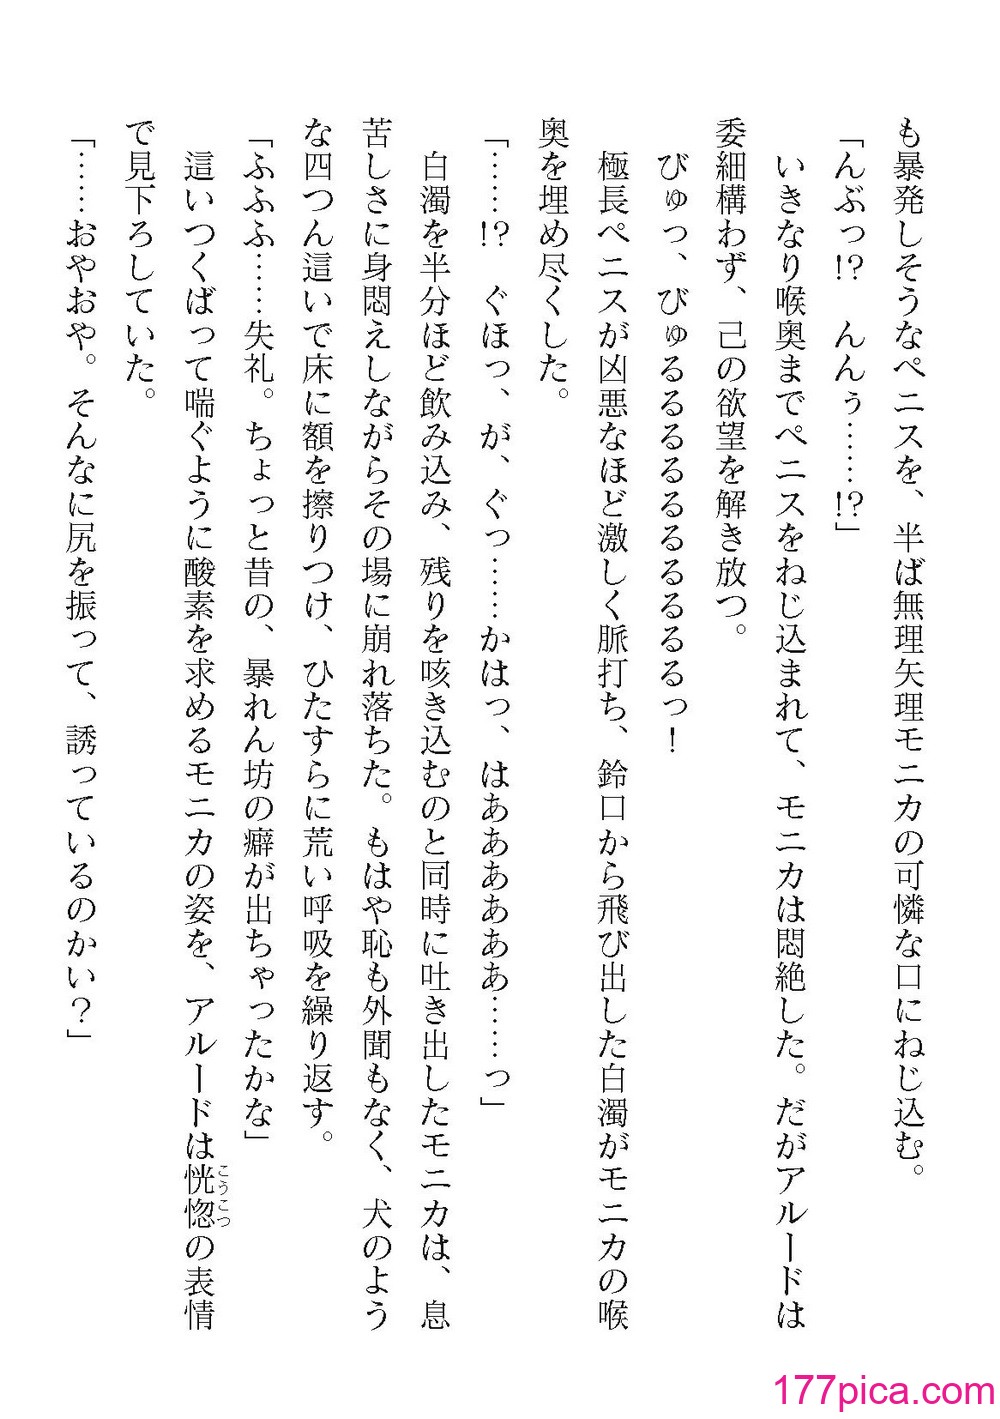 も暴発しそうなペニスを、半ば無理矢理モニカの可憐な口にねじ込む。
「んぶっ!?　んんぅ……!?」
いきなり喉奥までペニスをねじ込まれて、モニカは悶絶した。だがアルードは
委細構わず、己の欲望を解き放つ。
びゅっ、びゅるるるるるるるるるるっ！
極長ペニスが凶悪なほど激しく脈打ち、鈴口から飛び出した白濁がモニカの喉
奥を埋め尽くした。
「……!?　ぐほっ、が、ぐっ……かはっ、はああああああ……っ」
白濁を半分ほど飲み込み、残りを咳き込むのと同時に吐き出したモニカは、息
苦しさに身悶えしながらその場に崩れ落ちた。もはや恥も外聞もなく、犬のよう
な四つん這いで床に額を擦りつけ、ひたすらに荒い呼吸を繰り返す。
「ふふふ……失礼。ちょっと昔の、暴れん坊の癖が出ちゃったかな」
這いつくばって喘ぐように酸素を求めるモニカの姿を、アルードは恍惚こうこつの表情
で見下ろしていた。
「……おやおや。そんなに尻を振って、誘っているのかい？」
177pica.com